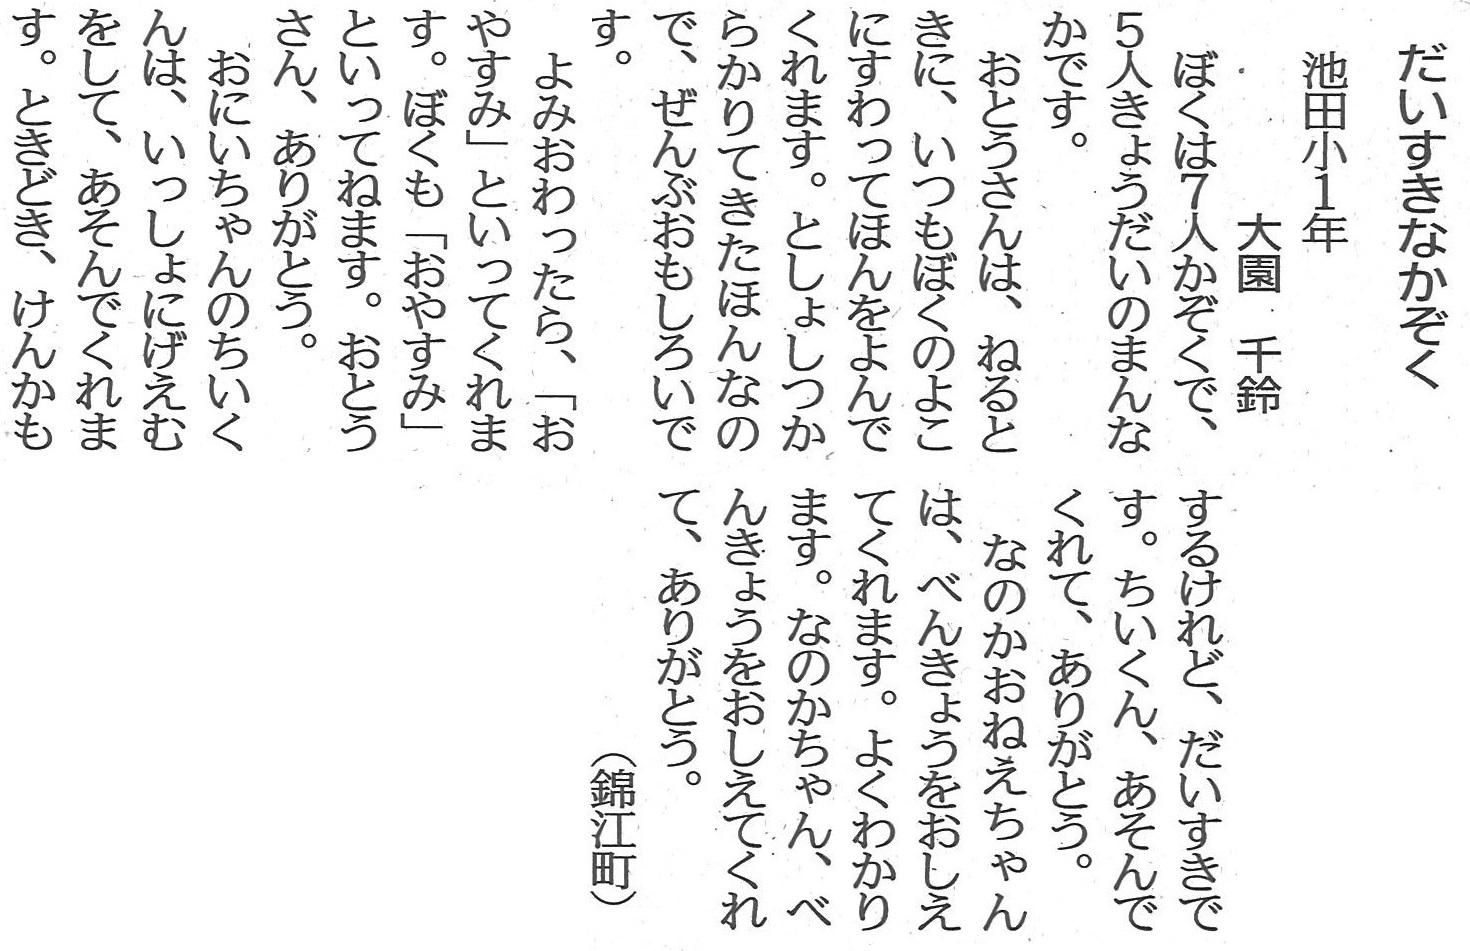 だいすきなかぞく
池田小1年
大園　千鈴
ぼくは7人かぞくで、
5人きょうだいのまんな
かです。
おとうさんは、ねると
きに、いつもぼくのよこ
にすわってほんをよんで
くれます。としょしつか
らかりてきたほんなの
で、ぜんぶおもしろいで
す。
よみおわったら、「お
やすみ」といってくれま
す。ぼくも「おやすみ」
といってねます。おとう
さん、ありがとう。
おにいちゃんのちいく
んは、いっしょにげえむ
をして、あそんでくれま
す。ときどき、けんかも
するけれど、だいすきで
す。ちいくん、あそんで
くれて、ありがとう。
なのかおねえちゃん
は、べんきょうをおしえ
てくれます。よくわかり
ます。なのかちゃん、べ
んきょうをおしえてくれ
て、ありがとう。
（錦江町）